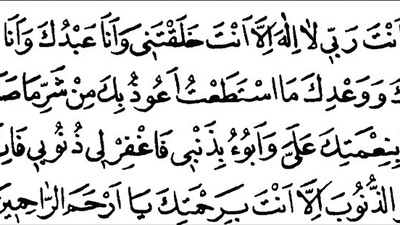 اَنْتَ رَبِّي لَا اِلٰهَ اِلَّا اَنْتَ خَلَقْتَنِي وَاَنَا عَبْدُكَ وَاَنَا
وَوَعْدِكَ مَا اسْتَطَعْتُ اَعُوذُ بِكَ مِنْ شَرِّ مَا
بِنِعْمَتِكَ عَلَىَّ وَاَبُوءُ بِذَنْبِي فَاغْفِرْ لِي ذُنُوبِي
الذُّنُوبَ اِلَّا اَنْتَ بِرَحْمَتِكَ يَا اَرْحَمَ الرَّاحِمِينَ